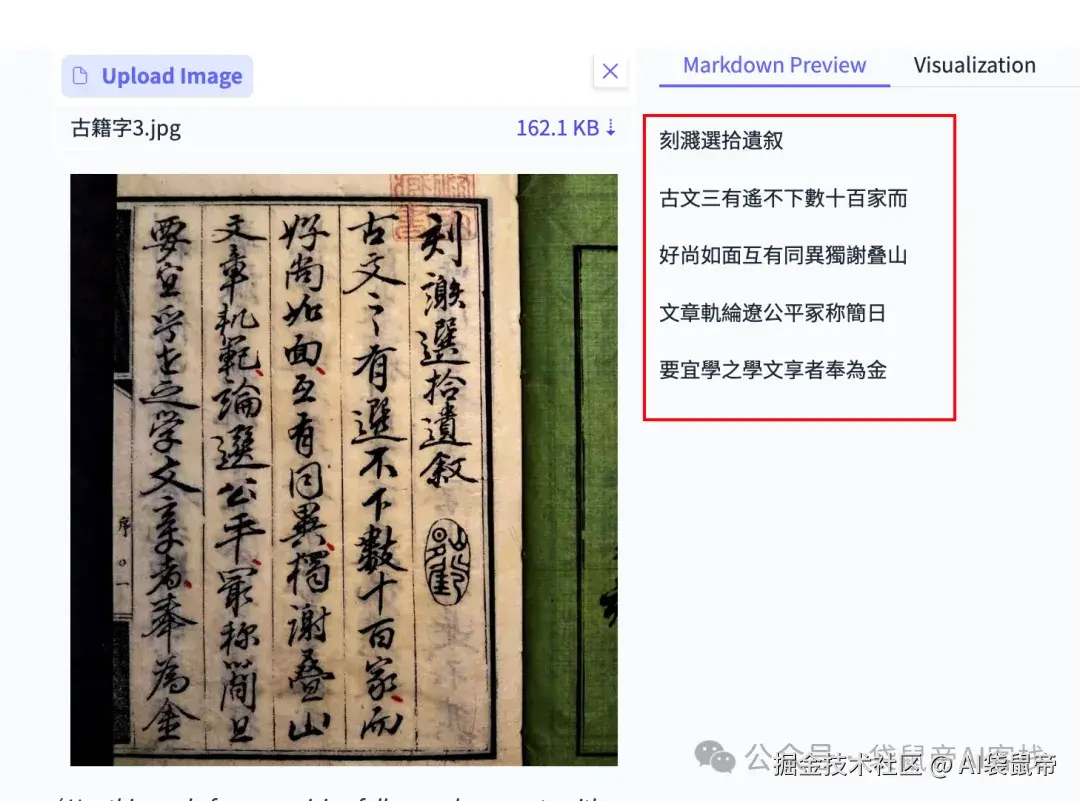 Upload Image
古籍字3.jpg
162.1 KB ↓
Markdown Preview
Visualization
刻謝選拾遺敘
古文之有選不下數十百家而
好尚如面互有同異獨謝疊山
文章軌範論選公平最称簡且
要宜乎世之学文章者奉為金
序
刻濺選拾遺叙
古文三有遙不下數十百家而
好尚如面互有同異獨謝叠山
文章軌綸遼公平冢称簡日
要宜學之學文享者奉為金
公众号
袋鼠帝AI客栈
掘金技术社区 @ AI袋鼠帝